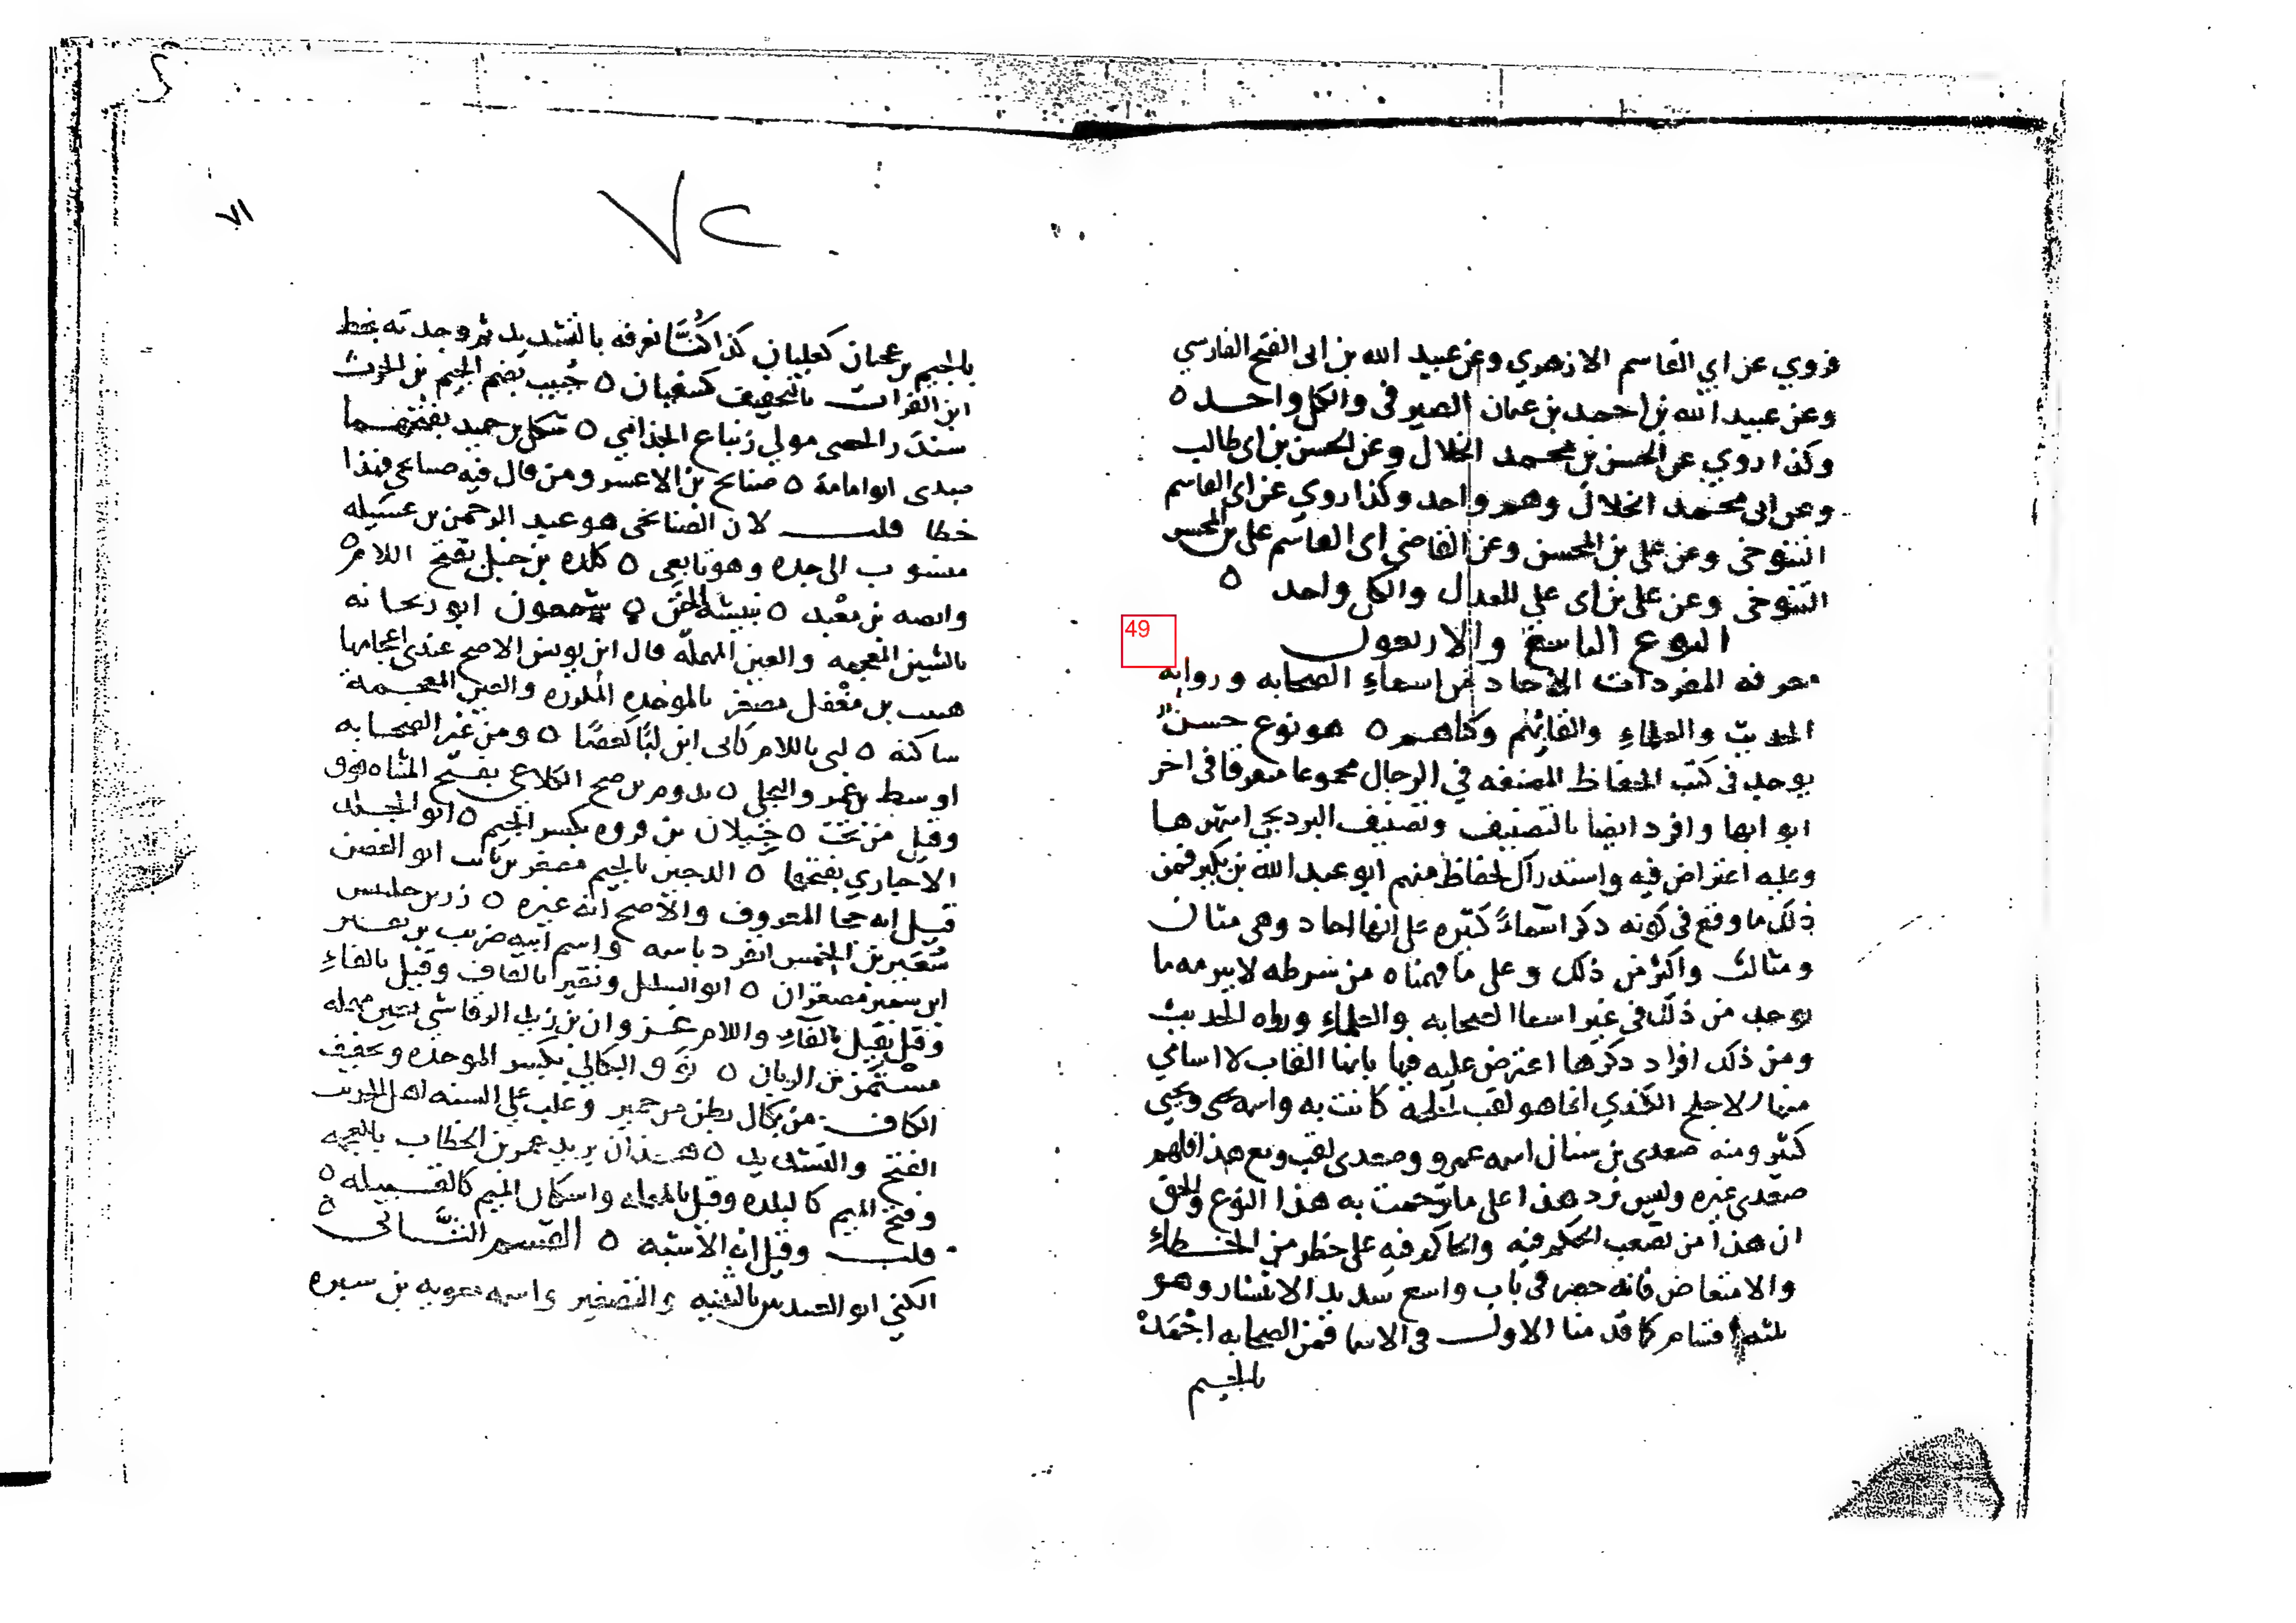 فروي عن ابي القاسم الازهري وعن عبيد الله بن ابى الفتح الفارسي
وعن عبيد الله بن احمد بن عثمان الصيرفى والكل واحد ٥
وكذا روي عن الحسن بن محمد الخلال وعن الحسن بن ابى طالب
وعن ابى محمد الخلال وهم واحد وكذا روي عن ابى القاسم
التنوخى وعن على بن المحسن وعن القاضي ابى القاسم على بن المحسن
التنوخى وعن على بن ابى علي المعدل والكل واحد ٥
النوع التاسع والاربعون
49
معرفه المفردات الاحاد من اسماء الصحابه ورواية
الحديث والعلماء والقابهم وكناهم ٥ هو نوع حسن
يوجد فى كتب الحفاظ المصنفه في الرجال مجموعا مفرقا فى اخر
ابوابها وافرد ايضا بالتصنيف وتصنيف البرديجي اشهرها
وعليه اعتراض فيه واستدراك لحفاظ منهم ابو عبد الله بن بكير فمن
ذلك ما وقع فى كونه ذكر اسماء كثيره على انها احاد وهى مثان
ومثالث واكثر من ذلك وعلى ما فهمناه من شرطه لا يلزمه ما
يوجد من ذلك في غير اسما الصحابه والعلماء ورواه الحديث
ومن ذلك افراد ذكرها اعترض عليه فيها بانها القاب لا اسامي
منها الاجلح الكندي انما هو لقب لجلحة كانت به واسمه يحيى ويحيى
كثير ومنه صغدى بن سنان اسمه عمرو وصغدى لقب ومع هذا فلهم
صغدى غيره وليس يرد هذا على ما ترجمت به هذا النوع والحق
ان هذا فن يصعب الحكم فيه والحاكم فيه على خطر من الخطاء
والانتقاض فانه حصر فى باب واسع شديد الانتشار وهو
ثلثه اقسام كما قدمنا الاول فى الاسما فمن الصحابه اجمد
بالجيم
٧٢
٧١
بالجيم بن عجيان كعليان كذا كنا نعرفه بالتشديد ثم وجدته بخط
ابن الفرات بالتخفيف كسفيان ٥ جبيب بضم الجيم بن الحرث
سندر الخصى مولي زنباع الجذامي ٥ شكل بن حميد بفتحهما
صدى ابو امامة ٥ صنابح بن الاعسر ومن قال فيه صنابحي فهذا
خطا قلت لان الصنابحى هو عبد الرحمن بن عسيله
منسوب الى جده وهو تابعى ٥ كلده بن حنبل بفتح اللام ٥
وابصه بن معبد ٥ نبيشه الخير ٥ شمعون ابو ريحانه
بالشين المعجمه والعين المهملة قال ابن يونس الاصح عندى اعجامها
هبيب بن مغفل مصغر بالموحده المكرره والغين المعجمة
ساكنه ٥ لبى باللام كابى ابن لبا كعصا ٥ ومن غير الصحابه
اوسط بن عمرو البجلى ٥ تدوم بن صبح الكلاعي بفتح المثناه فوق
وقيل من تحت ٥ جيلان بن فروه بكسر الجيم ٥ ابو الجلد
الاخباري بفتحها ٥ الدجين بالجيم مصغر بن ثابت ابو الغصن
قيل انه جحا المعروف والاصح انه غيره ٥ زر بن حبيش
سعير بن الخمس انفرد باسمه واسم ابيه ضريب بن نقير
ابن سمير مصغران ٥ ابو السليل ونقير بالقاف وقيل بالفاء
وقيل نفيل بالفاء واللام عزوان بن زيد الرقاشي بعين مهمله
مستمر بن الريان ٥ نوف البكالي بكسر الموحده وتخفيف
الكاف من بكال بطن من حمير وغلب على السنه اهل الحديث
الفتح والتشديد ٥ همذان بريد عمر بن الخطاب بالمعجمه
وفتح الميم كالبلده وقيل بالمهمله واسكان الميم كالقبيله ٥
قلت وقيل انه الاشبه ٥ القسم الثانى ٥
الكني ابو العبيدين بالتثنيه والتصغير واسمه معويه بن سبره